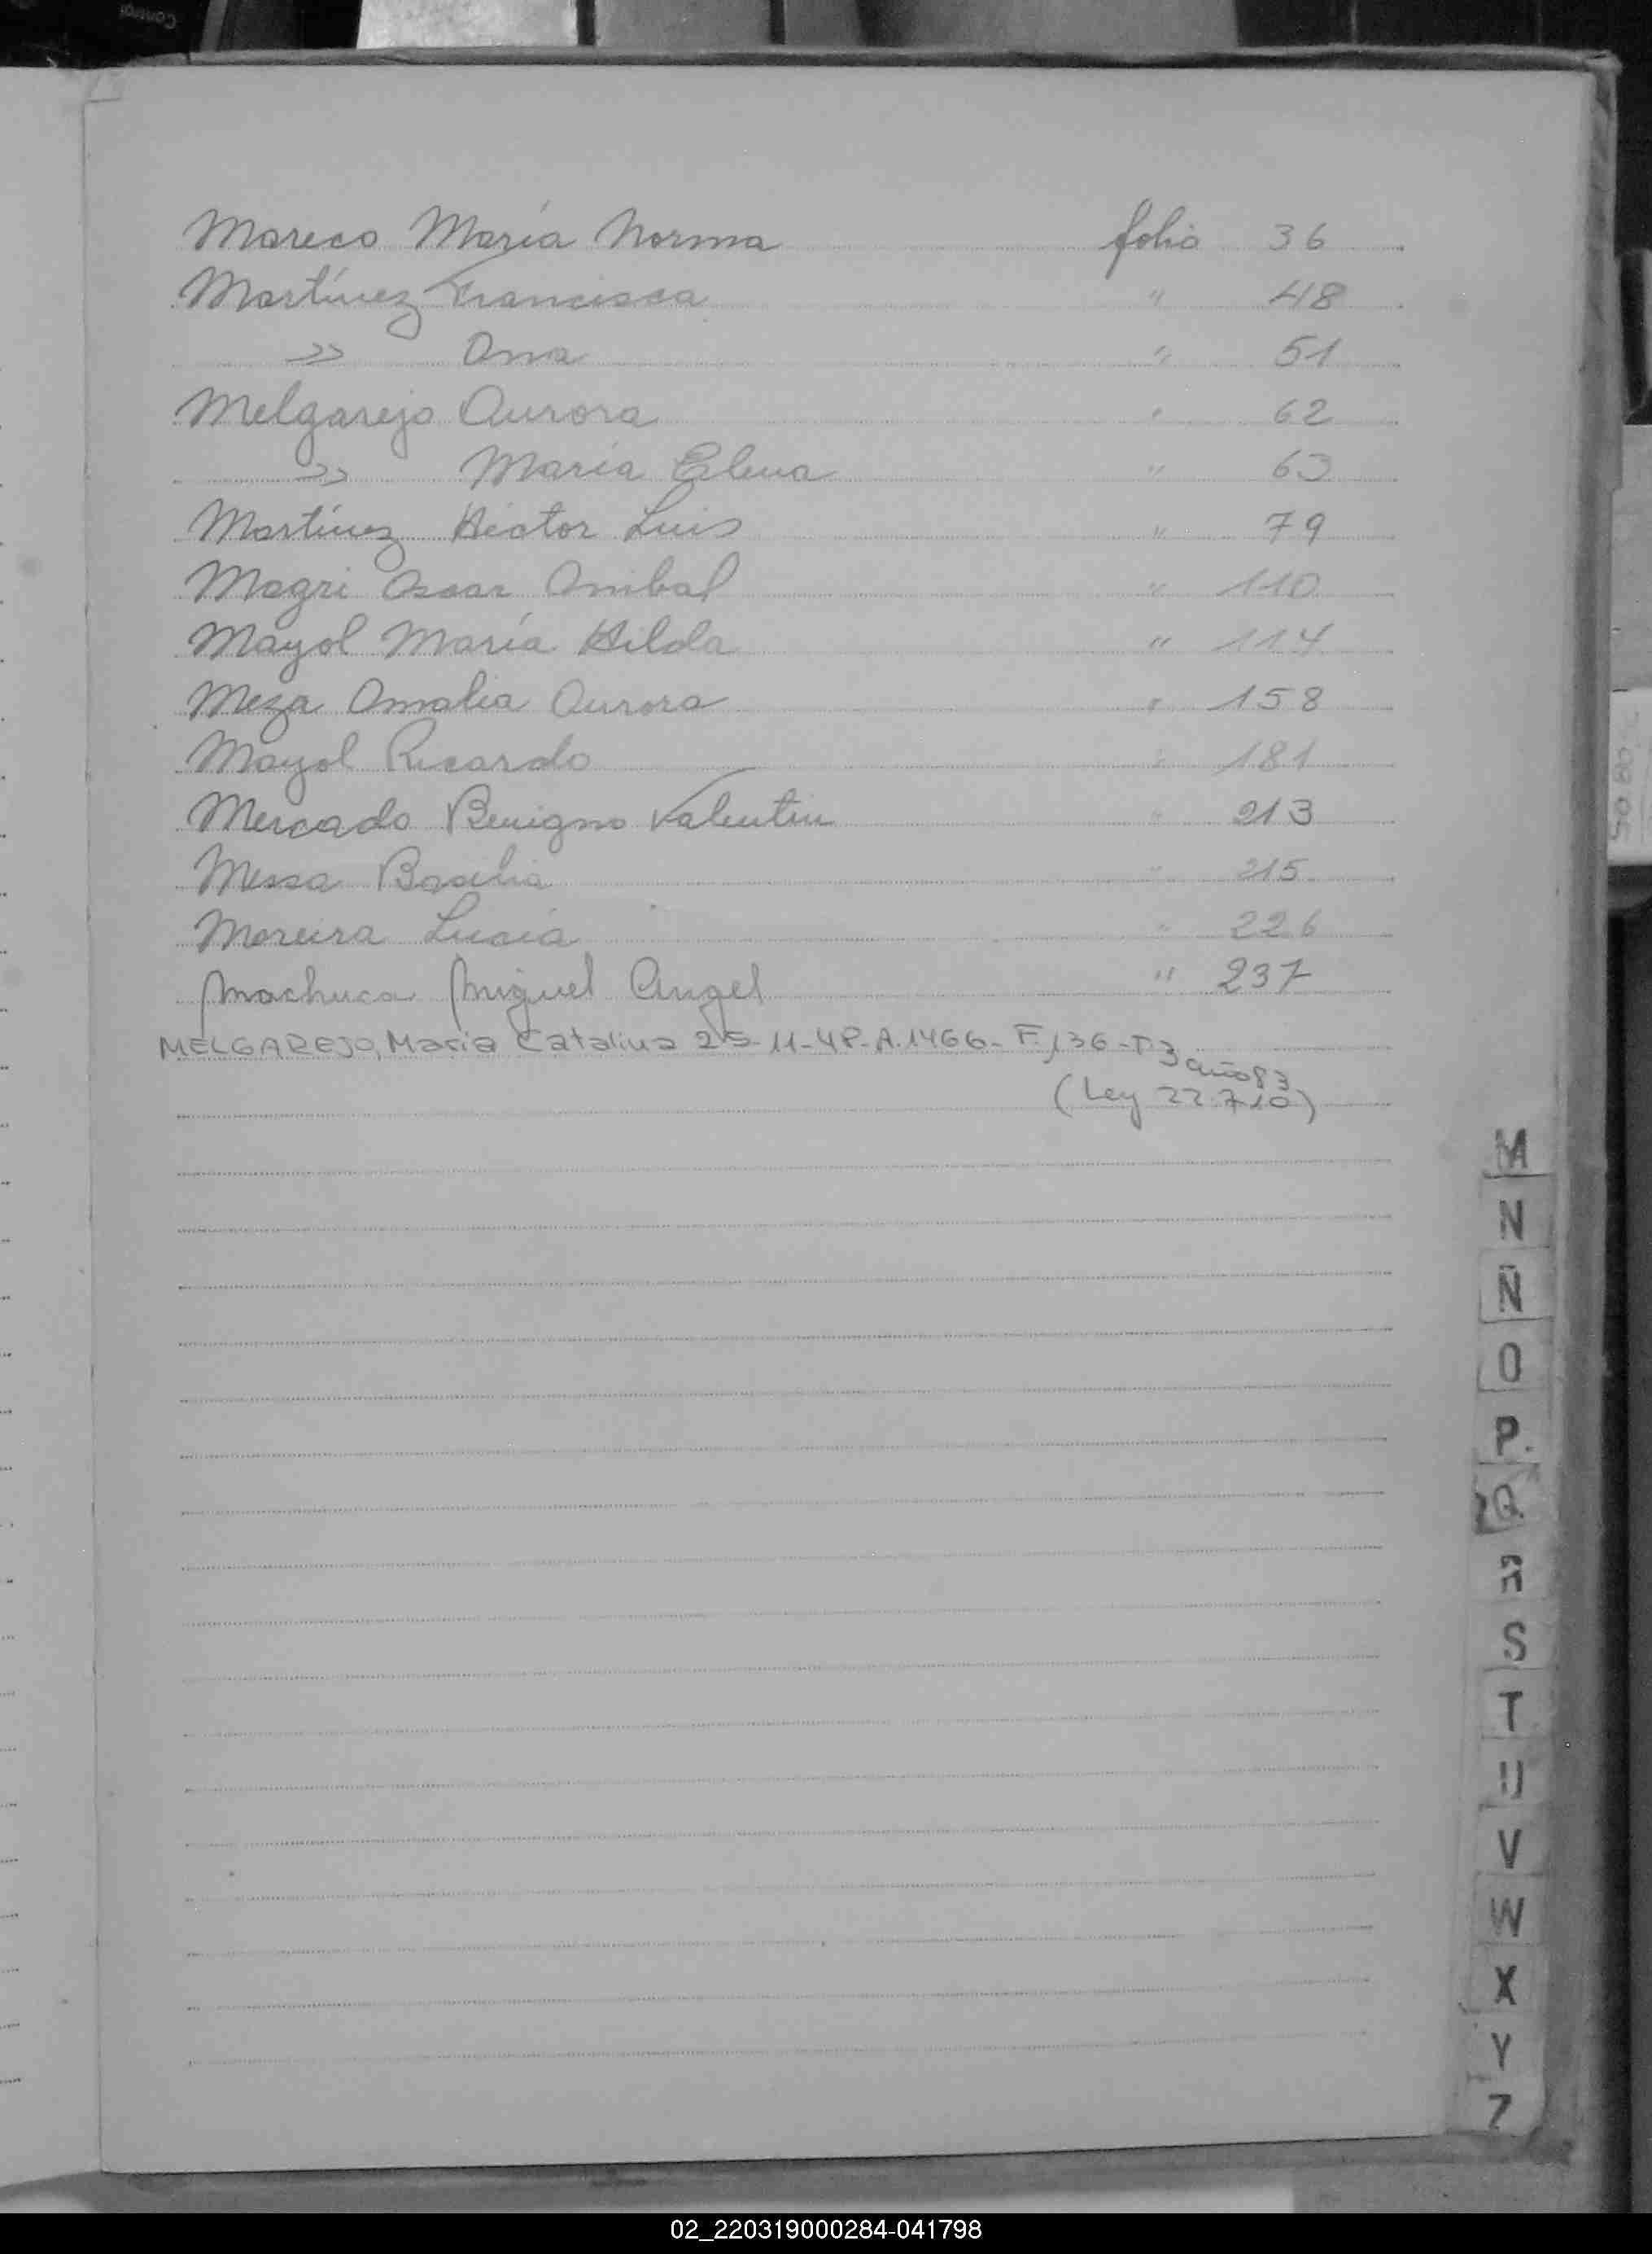 Mareco María Norma folio 36
Martínez Francisca " 48
" Ana " 51
Melgarejo Aurora " 62
" María Elena " 63
Martínez Héctor Luis " 79
Magri Oscar Anibal " 110
Mayol María Hilda " 114
Meza Amalia Aurora " 158
Mayol Ricardo " 181
Mercado Benigno Valentin " 213
Messa Basilia " 215
Moreira Lucía " 226
Machuca Miguel Angel " 237
MELGAREJO, María Catalina 25-11-48-A.1466-F,136-T3 año 83
(Ley 22.710)
M
N
Ñ
O
P
Q
R
S
T
U
V
W
X
Y
Z
02_220319000284-041798